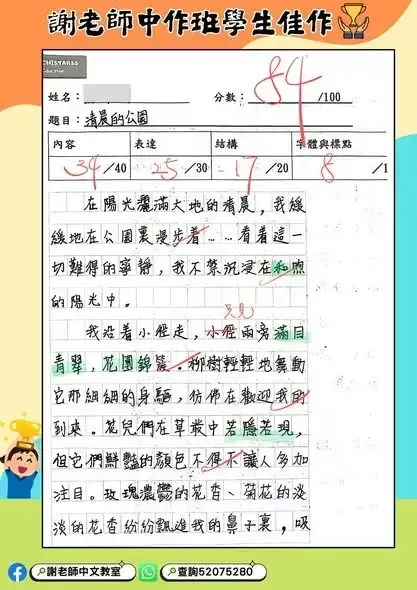 謝老師中作班學生佳作
CHISTARSS
Education
姓名：
分數：84/100
題目：清晨的公園
內容 表達 結構 字體與標點
34/40 25/30 17/20 8/1
在陽光灑滿大地的清晨，我緩
緩地在公園裏漫步着……看着這一
切難得的寧靜，我不禁沉浸在和煦
的陽光中。
我沿着小徑走，小徑兩旁滿目
青翠，花團錦簇。柳樹輕輕地舞動
它那細細的身軀，彷彿在歡迎我的
到來。花兒們在草叢中若隱若現，
但它們鮮豔的顏色不得不讓人多加
注目。玫瑰濃鬱的花香、菊花的淡
淡的花香紛紛飄進我的鼻子裏，吸
謝老師中文教室
查詢52075280